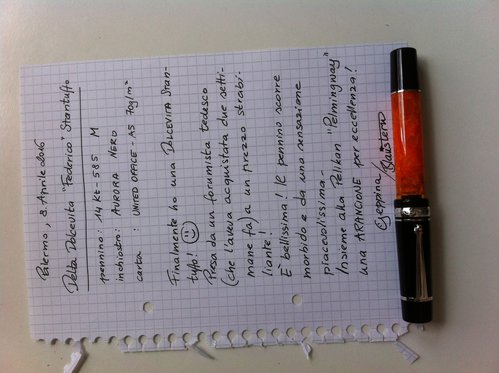 Palermo, 8. Aprile 2016
Delta Dolcevita "Federico" Stantuffo
pennino: 14 Kt - 585 M
inchiostro: AURORA NERO
carta : UNITED OFFICE - A5 70g/m²
Finalmente ho una DOLCEVITA Stan-
tuffo! ☺
Presa da un forumista tedesco
(che l'aveva acquistata due setti-
mane fa) a un prezzo strabi-
liante!
È bellissima! Il pennino scorre
morbido e da una sensazione
piacevolissima -
Insieme alla Pelikan "Pelmingway"
una ARANCIONE per eccellenza!
Geppina/Blaustern